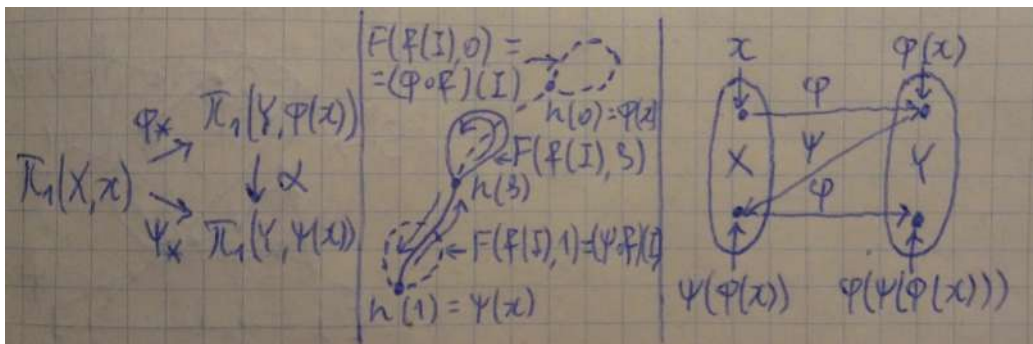 π₁(X,x)
φ*
π₁(Y,φ(x))
↓ α
ψ*
π₁(Y,ψ(x))
F(f(I),0) =
=(φ∘f)(I)
h(0)=φ(x)
F(f(I),3)
h(3)
F(f(I),1)=(ψ∘f)(I)
h(1)=ψ(x)
x
φ(x)
φ
X
ψ
Y
φ
ψ(φ(x))
φ(ψ(φ(x)))